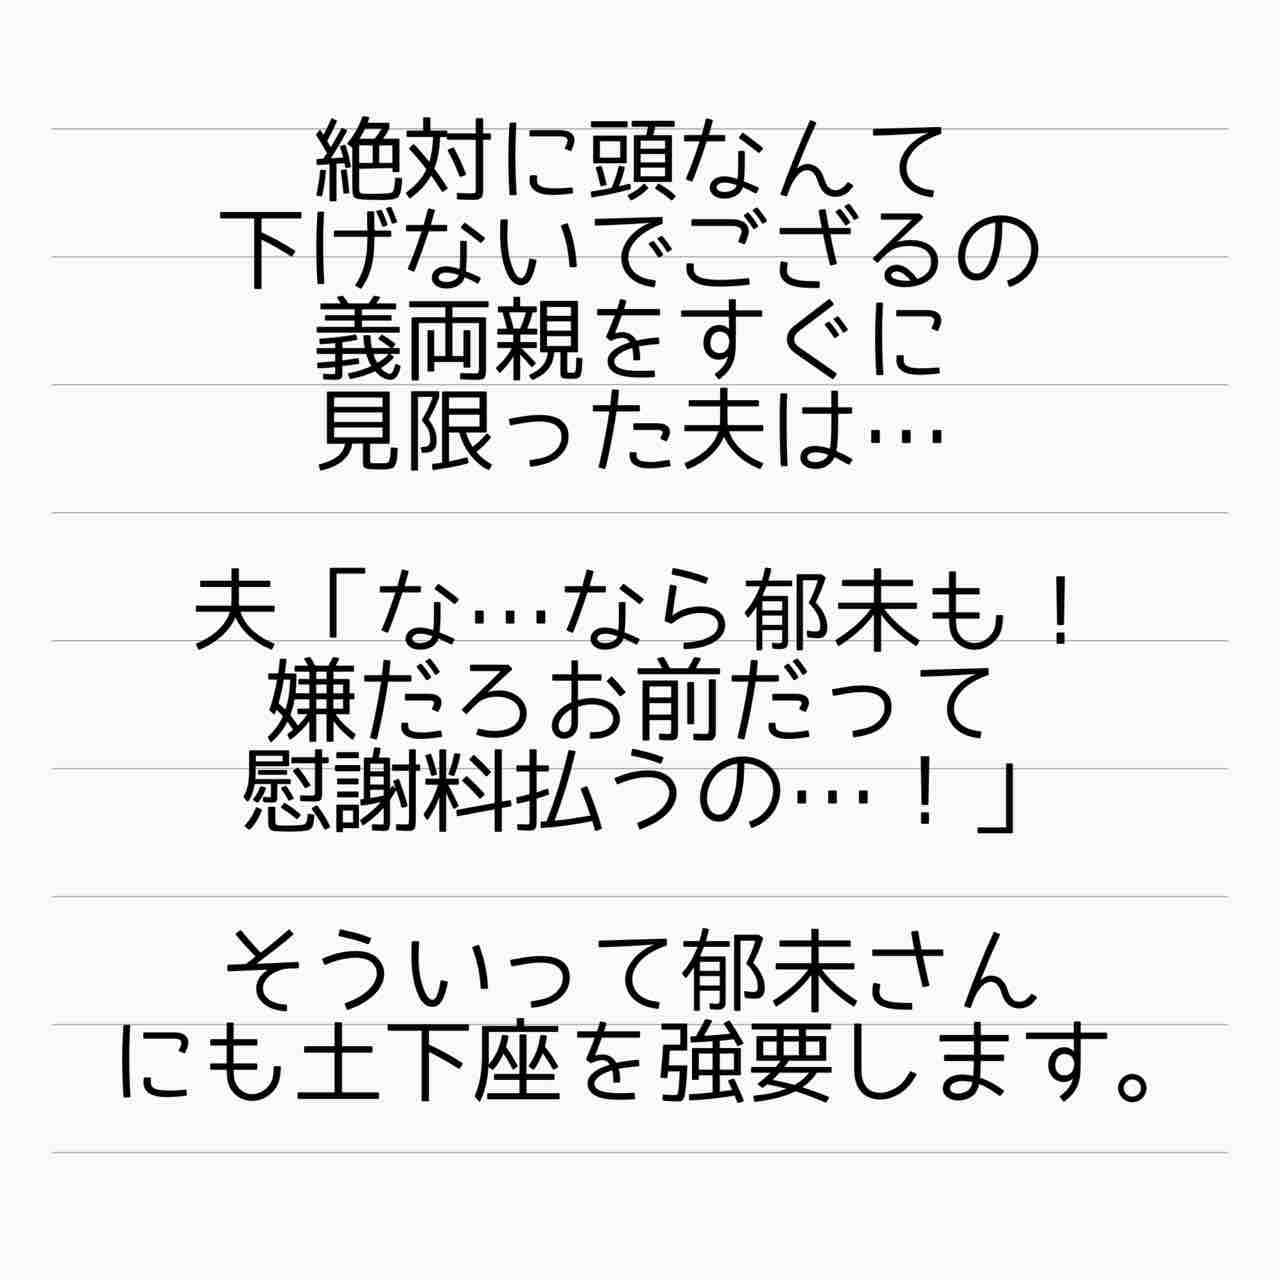 絶対に頭なんて
下げないでござるの
義両親をすぐに
見限った夫は…
夫「な…なら郁未も！
嫌だろお前だって
慰謝料払うの…！」
そういって郁未さん
にも土下座を強要します。